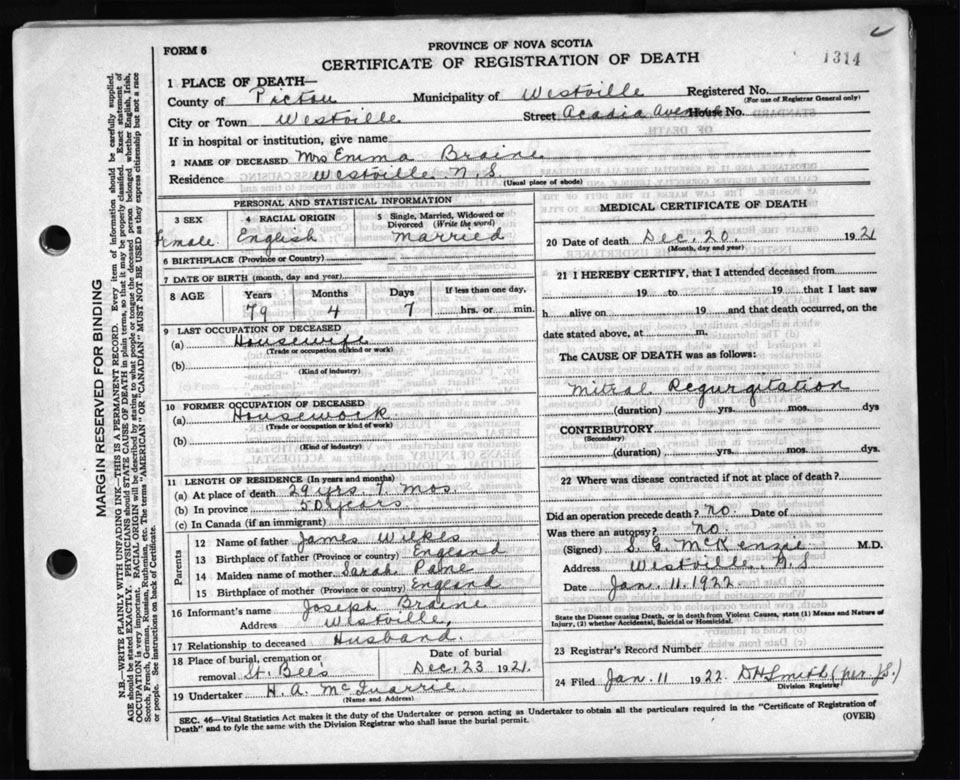 FORM 5
PROVINCE OF NOVA SCOTIA
CERTIFICATE OF REGISTRATION OF DEATH
1314
1 PLACE OF DEATH—
County of Pictou Municipality of Westville Registered No.
(For use of Registrar General only)
City or Town Westville Street Acadia Avenue House No.
If in hospital or institution, give name
2 NAME OF DECEASED Mrs Emma Braine
Residence Westville N.S.
(Usual place of abode)
PERSONAL AND STATISTICAL INFORMATION
3 SEX Female
4 RACIAL ORIGIN English
5 Single, Married, Widowed or Divorced (Write the word) Married
6 BIRTHPLACE (Province or Country)
7 DATE OF BIRTH (month, day and year)
8 AGE Years Months Days If less than one day,
79 4 7 hrs. or min.
9 LAST OCCUPATION OF DECEASED
(a) Housewife
(Trade or occupation or kind or work)
(b)
(Kind of Industry)
10 FORMER OCCUPATION OF DECEASED
(a) Housework
(Trade or occupation or kind of work)
(b)
(Kind of Industry)
11 LENGTH OF RESIDENCE (In years and months)
(a) At place of death 29 yrs. 7 Mos.
(b) In province 50 years
(c) In Canada (if an immigrant)
Parents
12 Name of father James Wilkes
13 Birthplace of father (Province or country) England
14 Maiden name of mother Sarah
15 Birthplace of mother (Province or country) England
16 Informant's name Joseph Braine
Address Westville,
17 Relationship to deceased Husband.
18 Place of burial, cremation or removal St. Bees Date of burial Dec. 23 1921.
19 Undertaker H. A. McQuarrie
(Name and Address)
MEDICAL CERTIFICATE OF DEATH
20 Date of death Dec. 20. 1921
(Month, day and year)
21 I HEREBY CERTIFY, that I attended deceased from
19 to 19 that I last saw
h alive on 19 and that death occurred, on the
date stated above, at m.
The CAUSE OF DEATH was as follows:
Mitral Regurgitation
(duration) yrs. mos. dys
CONTRIBUTORY
(Secondary)
(duration) yrs. mos. dys.
22 Where was disease contracted if not at place of death?
Did an operation precede death? no. Date of
Was there an autopsy? no.
(Signed) S. G. McKenzie M.D.
Address Westville, N.S
Date Jan. 11. 1922
State the Disease causing Death, or in death from Violent Causes, state (1) Means and Nature of Injury, (2) whether Accidental, Suicidal or Homicidal.
23 Registrar's Record Number
24 Filed Jan. 11 1922 DH Smith (per J.S.)
Division Registrar
SEC. 46—Vital Statistics Act makes it the duty of the Undertaker or person acting as Undertaker to obtain all the particulars required in the "Certificate of Registration of
Death" and to fyle the same with the Division Registrar who shall issue the burial permit.
(OVER)
MARGIN RESERVED FOR BINDING
N.B.—WRITE PLAINLY WITH UNFADING INK—THIS IS A PERMANENT RECORD. Every item of information should be carefully supplied.
AGE should be stated EXACTLY. PHYSICIANS should STATE CAUSE OF DEATH in plain terms, so that it may be properly classified. Exact statement of
OCCUPATION is very important. RACIAL ORIGIN will be described by stating to what people or tongue the deceased person belonged whether English, Irish,
Scotch, French, German, Russian, Ruthenian, etc. The terms "AMERICAN" or "CANADIAN" MUST NOT BE USED as they express citizenship but not a race
or people. See instructions on back of Certificate.